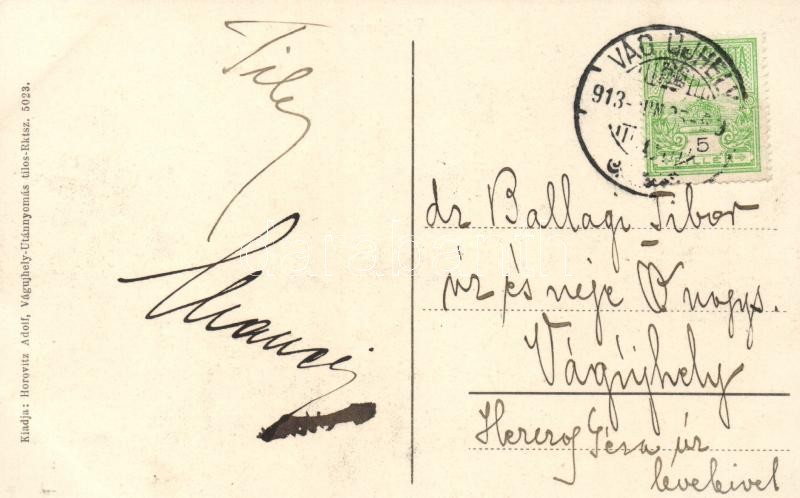 Kiadja: Horovitz Adolf, Vágujhely-Utánnyomás tilos-Rktsz. 5023.
VÁG ÚJHELY
913
5
dr Ballagi Tibor
úr és neje Ő nagys.
Vágújhely
Herczog Géza úr
levelivel